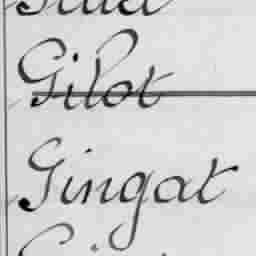 Gilot
Gingat